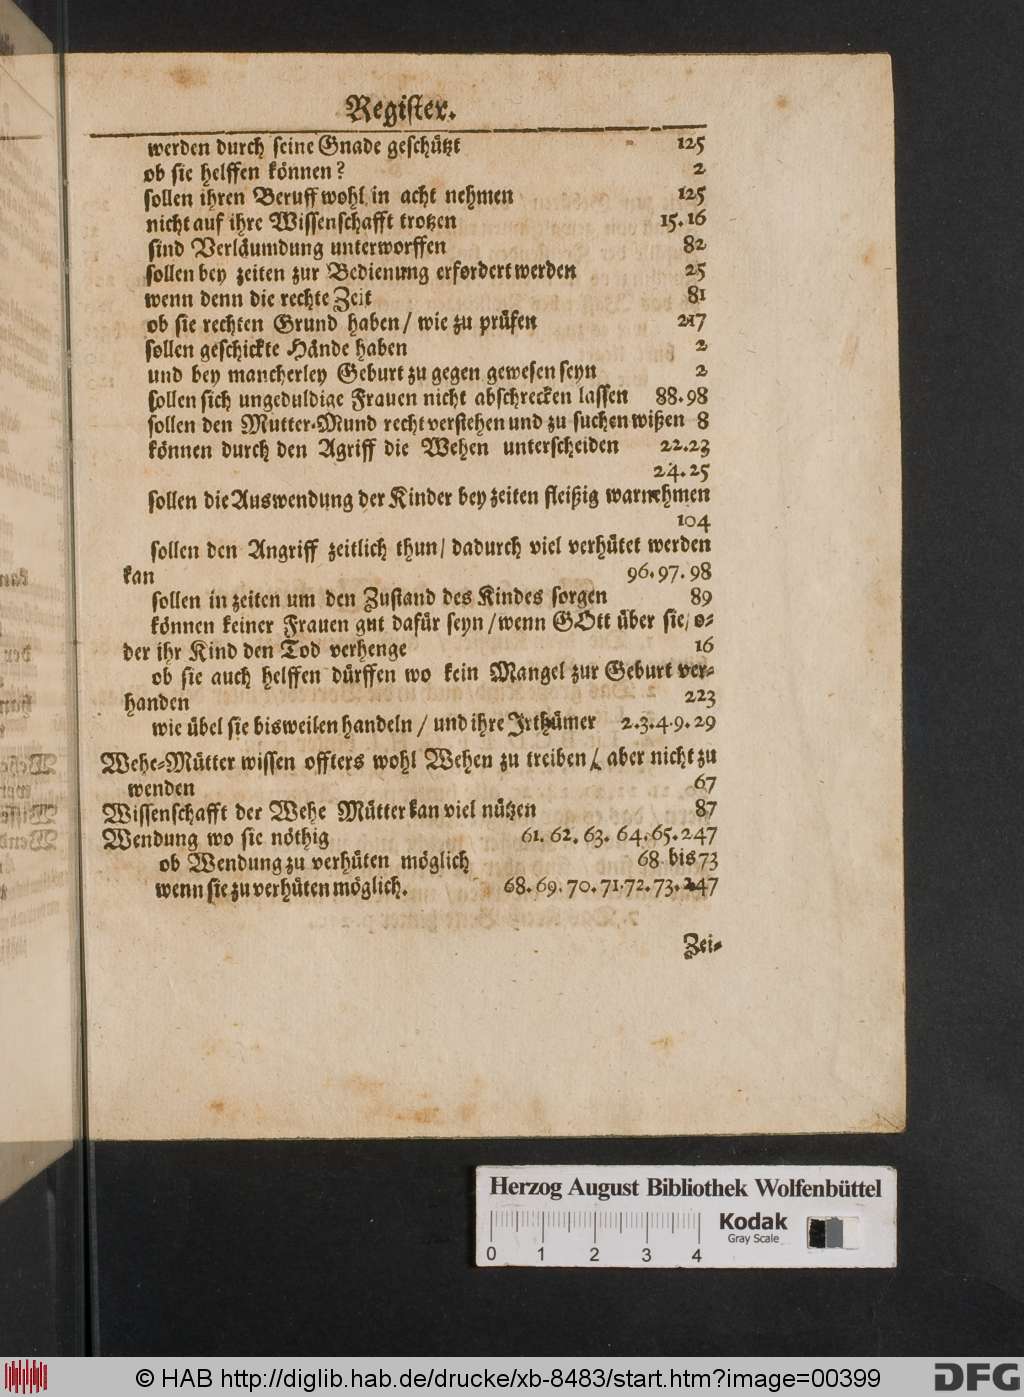 Register.
werden durch seine Gnade geschützt 125
ob sie helffen können? 2
sollen ihren Beruff wohl in acht nehmen 125
nicht auf ihre Wissenschafft trotzen 15. 16
sind Verläumdung unterworffen 82
sollen bey zeiten zur Bedienung erfordert werden 25
wenn denn die rechte Zeit 81
ob sie rechten Grund haben / wie zu prüfen 217
sollen geschickte Hände haben 2
und bey mancherley Geburt zu gegen gewesen seyn 2
sollen sich ungeduldige Frauen nicht abschrecken lassen 88. 98
sollen den Mutter-Mund recht verstehen und zu suchen wißen 8
können durch den Agriff die Wehen unterscheiden 22. 23
24. 25
sollen die Auswendung der Kinder bey zeiten fleißig warnehmen
104
sollen den Angriff zeitlich thun / dadurch viel verhütet werden
kan 96. 97. 98
sollen in zeiten um den Zustand des Kindes sorgen 89
können keiner Frauen gut dafür seyn / wenn GOtt über sie / o-
der ihr Kind den Tod verhenge 16
ob sie auch helffen dürffen wo kein Mangel zur Geburt ver-
handen 223
wie übel sie bisweilen handeln / und ihre Irthümer 2. 3. 4. 9. 29
Wehe-Mütter wissen offters wohl Wehen zu treiben / aber nicht zu
wenden 67
Wissenschafft der Wehe Mütter kan viel nützen 87
Wendung wo sie nöthig 61. 62. 63. 64. 65. 247
ob Wendung zu verhüten möglich 68 bis 73
wenn sie zu verhüten möglich. 68. 69. 70. 71. 72. 73. 247
Zei-
Herzog August Bibliothek Wolfenbüttel
Kodak
Gray Scale
0 1 2 3 4
© HAB http://diglib.hab.de/drucke/xb-8483/start.htm?image=00399
DFG